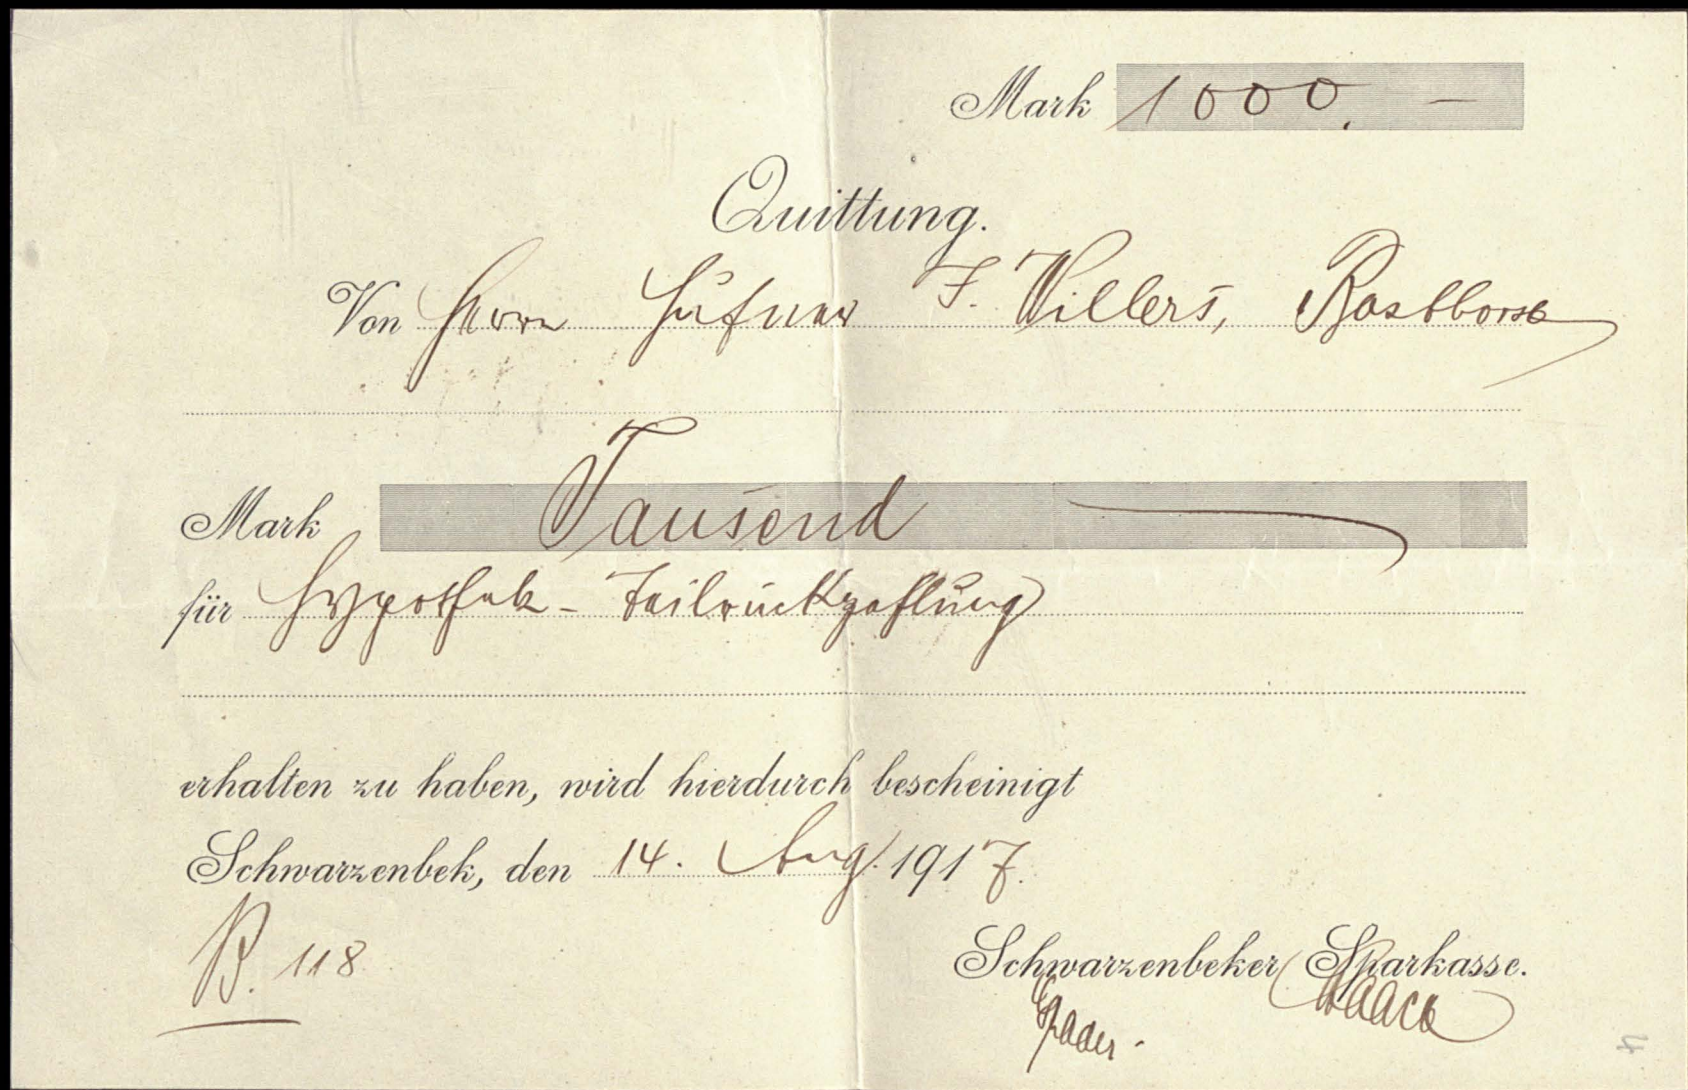 Mark 1000.—
Quittung.
Von Herrn Hufner F. Willers, 
Mark Tausend
für Hypothek-Teilrückzahlung
erhalten zu haben, wird hierdurch bescheinigt
Schwarzenbek, den 14. Aug. 1917.
B. 118
Schwarzenbeker Sparkasse.